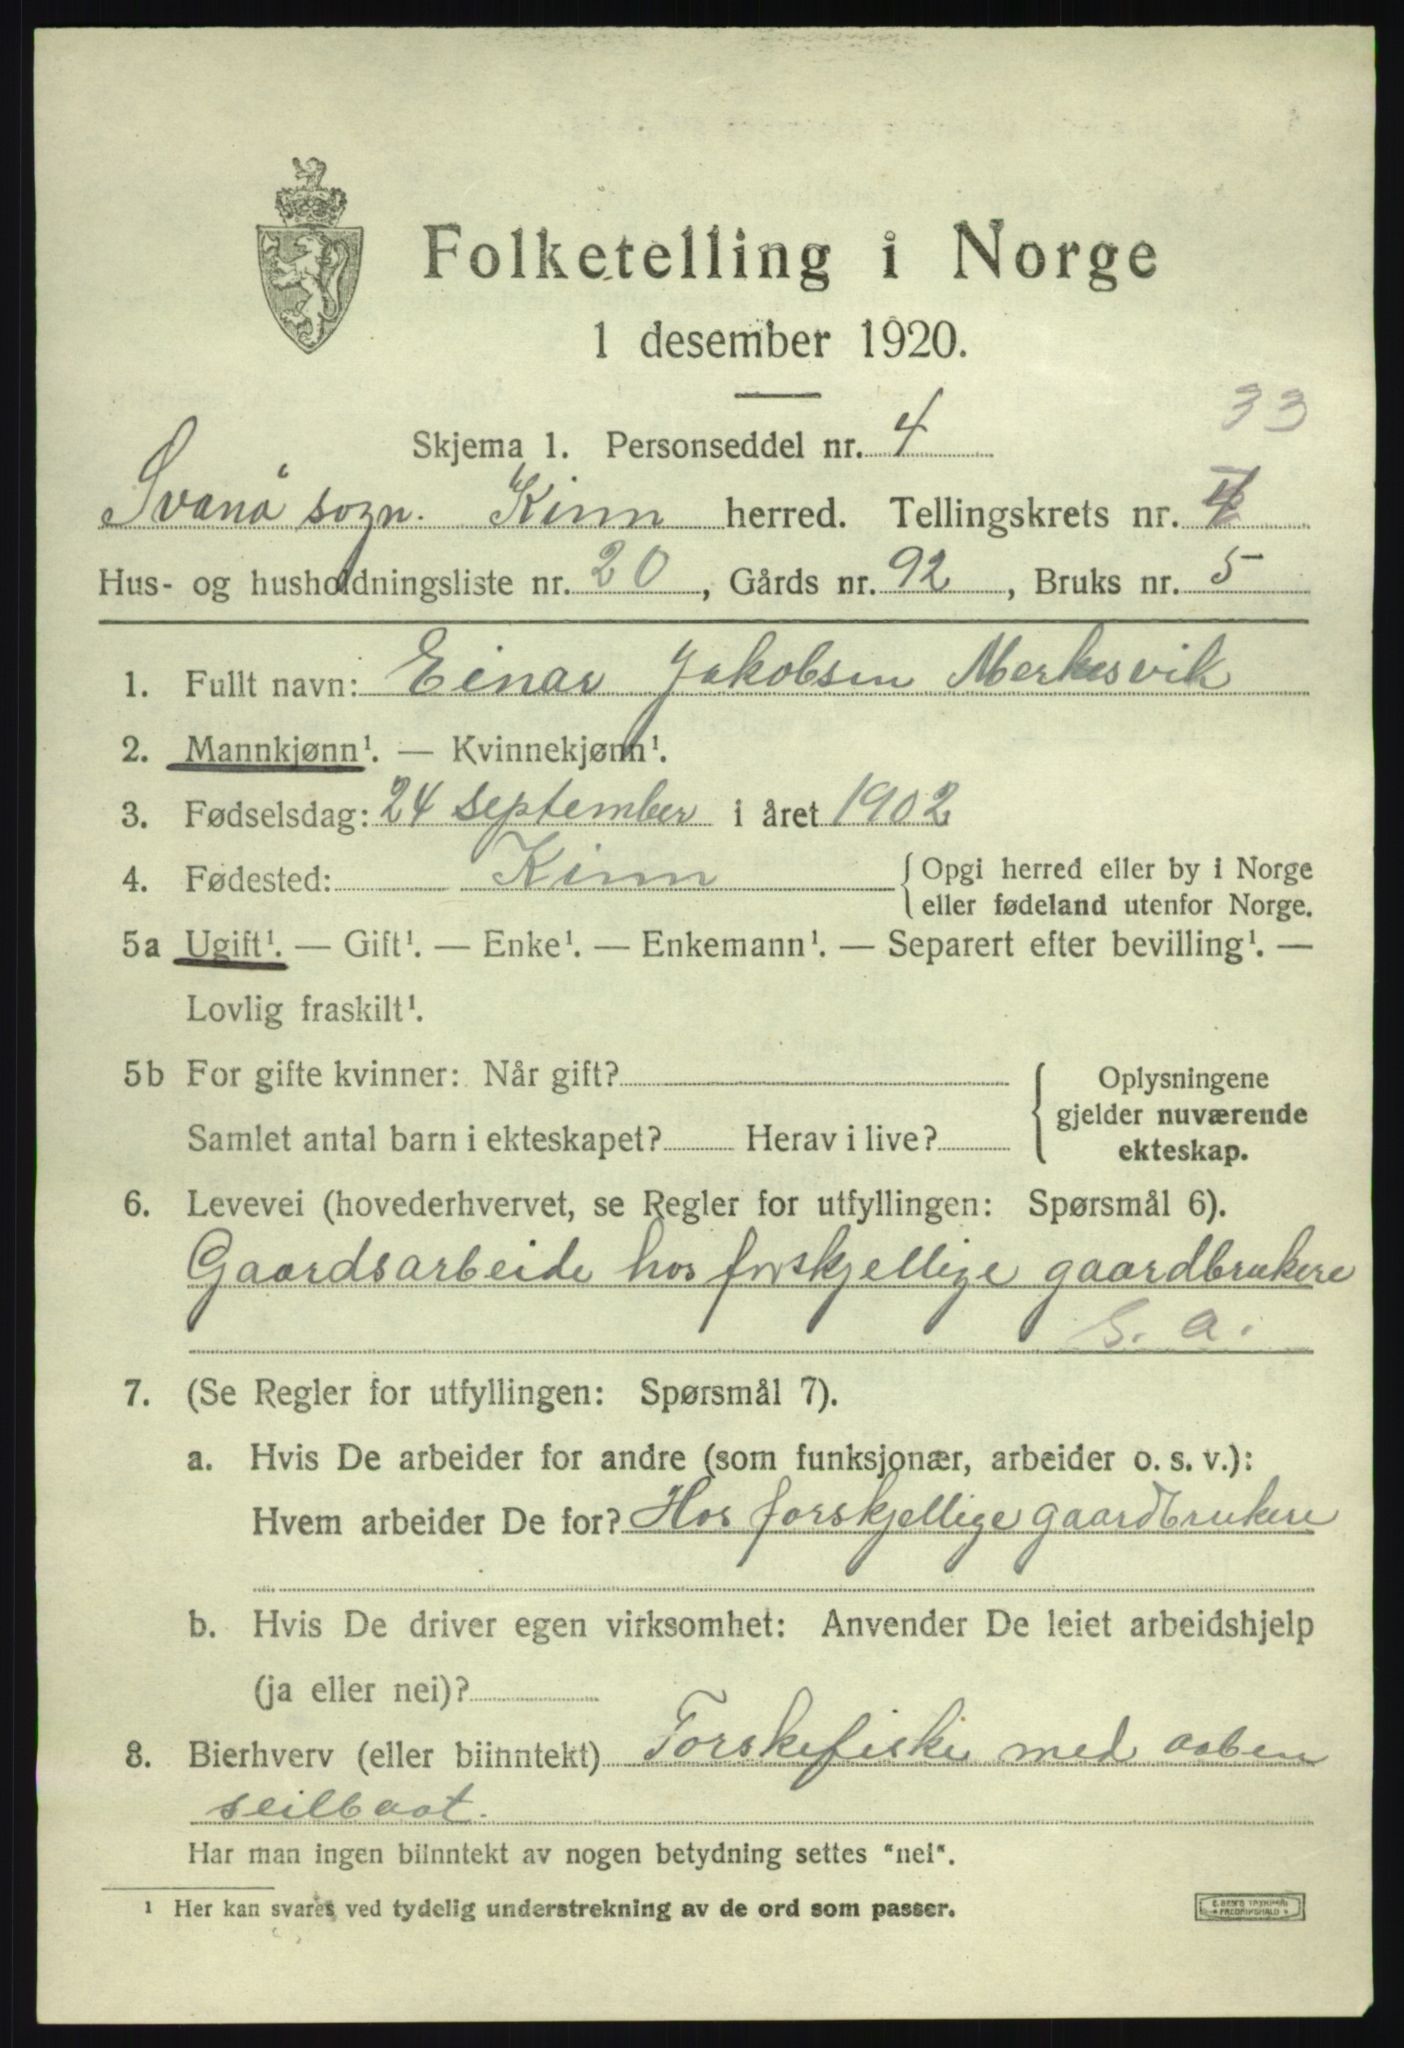 Folketelling i Norge
1 desember 1920.
33
Skjema 1. Personseddel nr. 4
Svanø sogn. Kinn herred. Tellingskrets nr. 4
Hus- og husholdningsliste nr. 20, Gårds nr. 92, Bruks nr. 5
1. Fullt navn: Einar Jakobsen Merkesvik
2. Mannkjønn¹. — Kvinnekjønn¹.
3. Fødselsdag: 24 september i året 1902
4. Fødested: Kinn { Opgi herred eller by i Norge
eller fødeland utenfor Norge.
5a Ugift¹. — Gift¹. — Enke¹. — Enkemann¹. — Separert efter bevilling¹. —
Lovlig fraskilt¹.
5b For gifte kvinner: Når gift?
Samlet antal barn i ekteskapet? Herav i live?
{ Oplysningene
gjelder nuværende
ekteskap.
6. Levevei (hovederhvervet, se Regler for utfyllingen: Spørsmål 6).
Gaardsarbeide hos forskjellige gaardbrukere
G. a.
7. (Se Regler for utfyllingen: Spørsmål 7).
a. Hvis De arbeider for andre (som funksjonær, arbeider o. s. v.):
Hvem arbeider De for? Hos forskjellige gaardbrukere
b. Hvis De driver egen virksomhet: Anvender De leiet arbeidshjelp
(ja eller nei)?
8. Bierhverv (eller biinntekt) Torskefiske med aaben
seilbaat.
Har man ingen biinntekt av nogen betydning settes "nei".
¹ Her kan svares ved tydelig understrekning av de ord som passer.